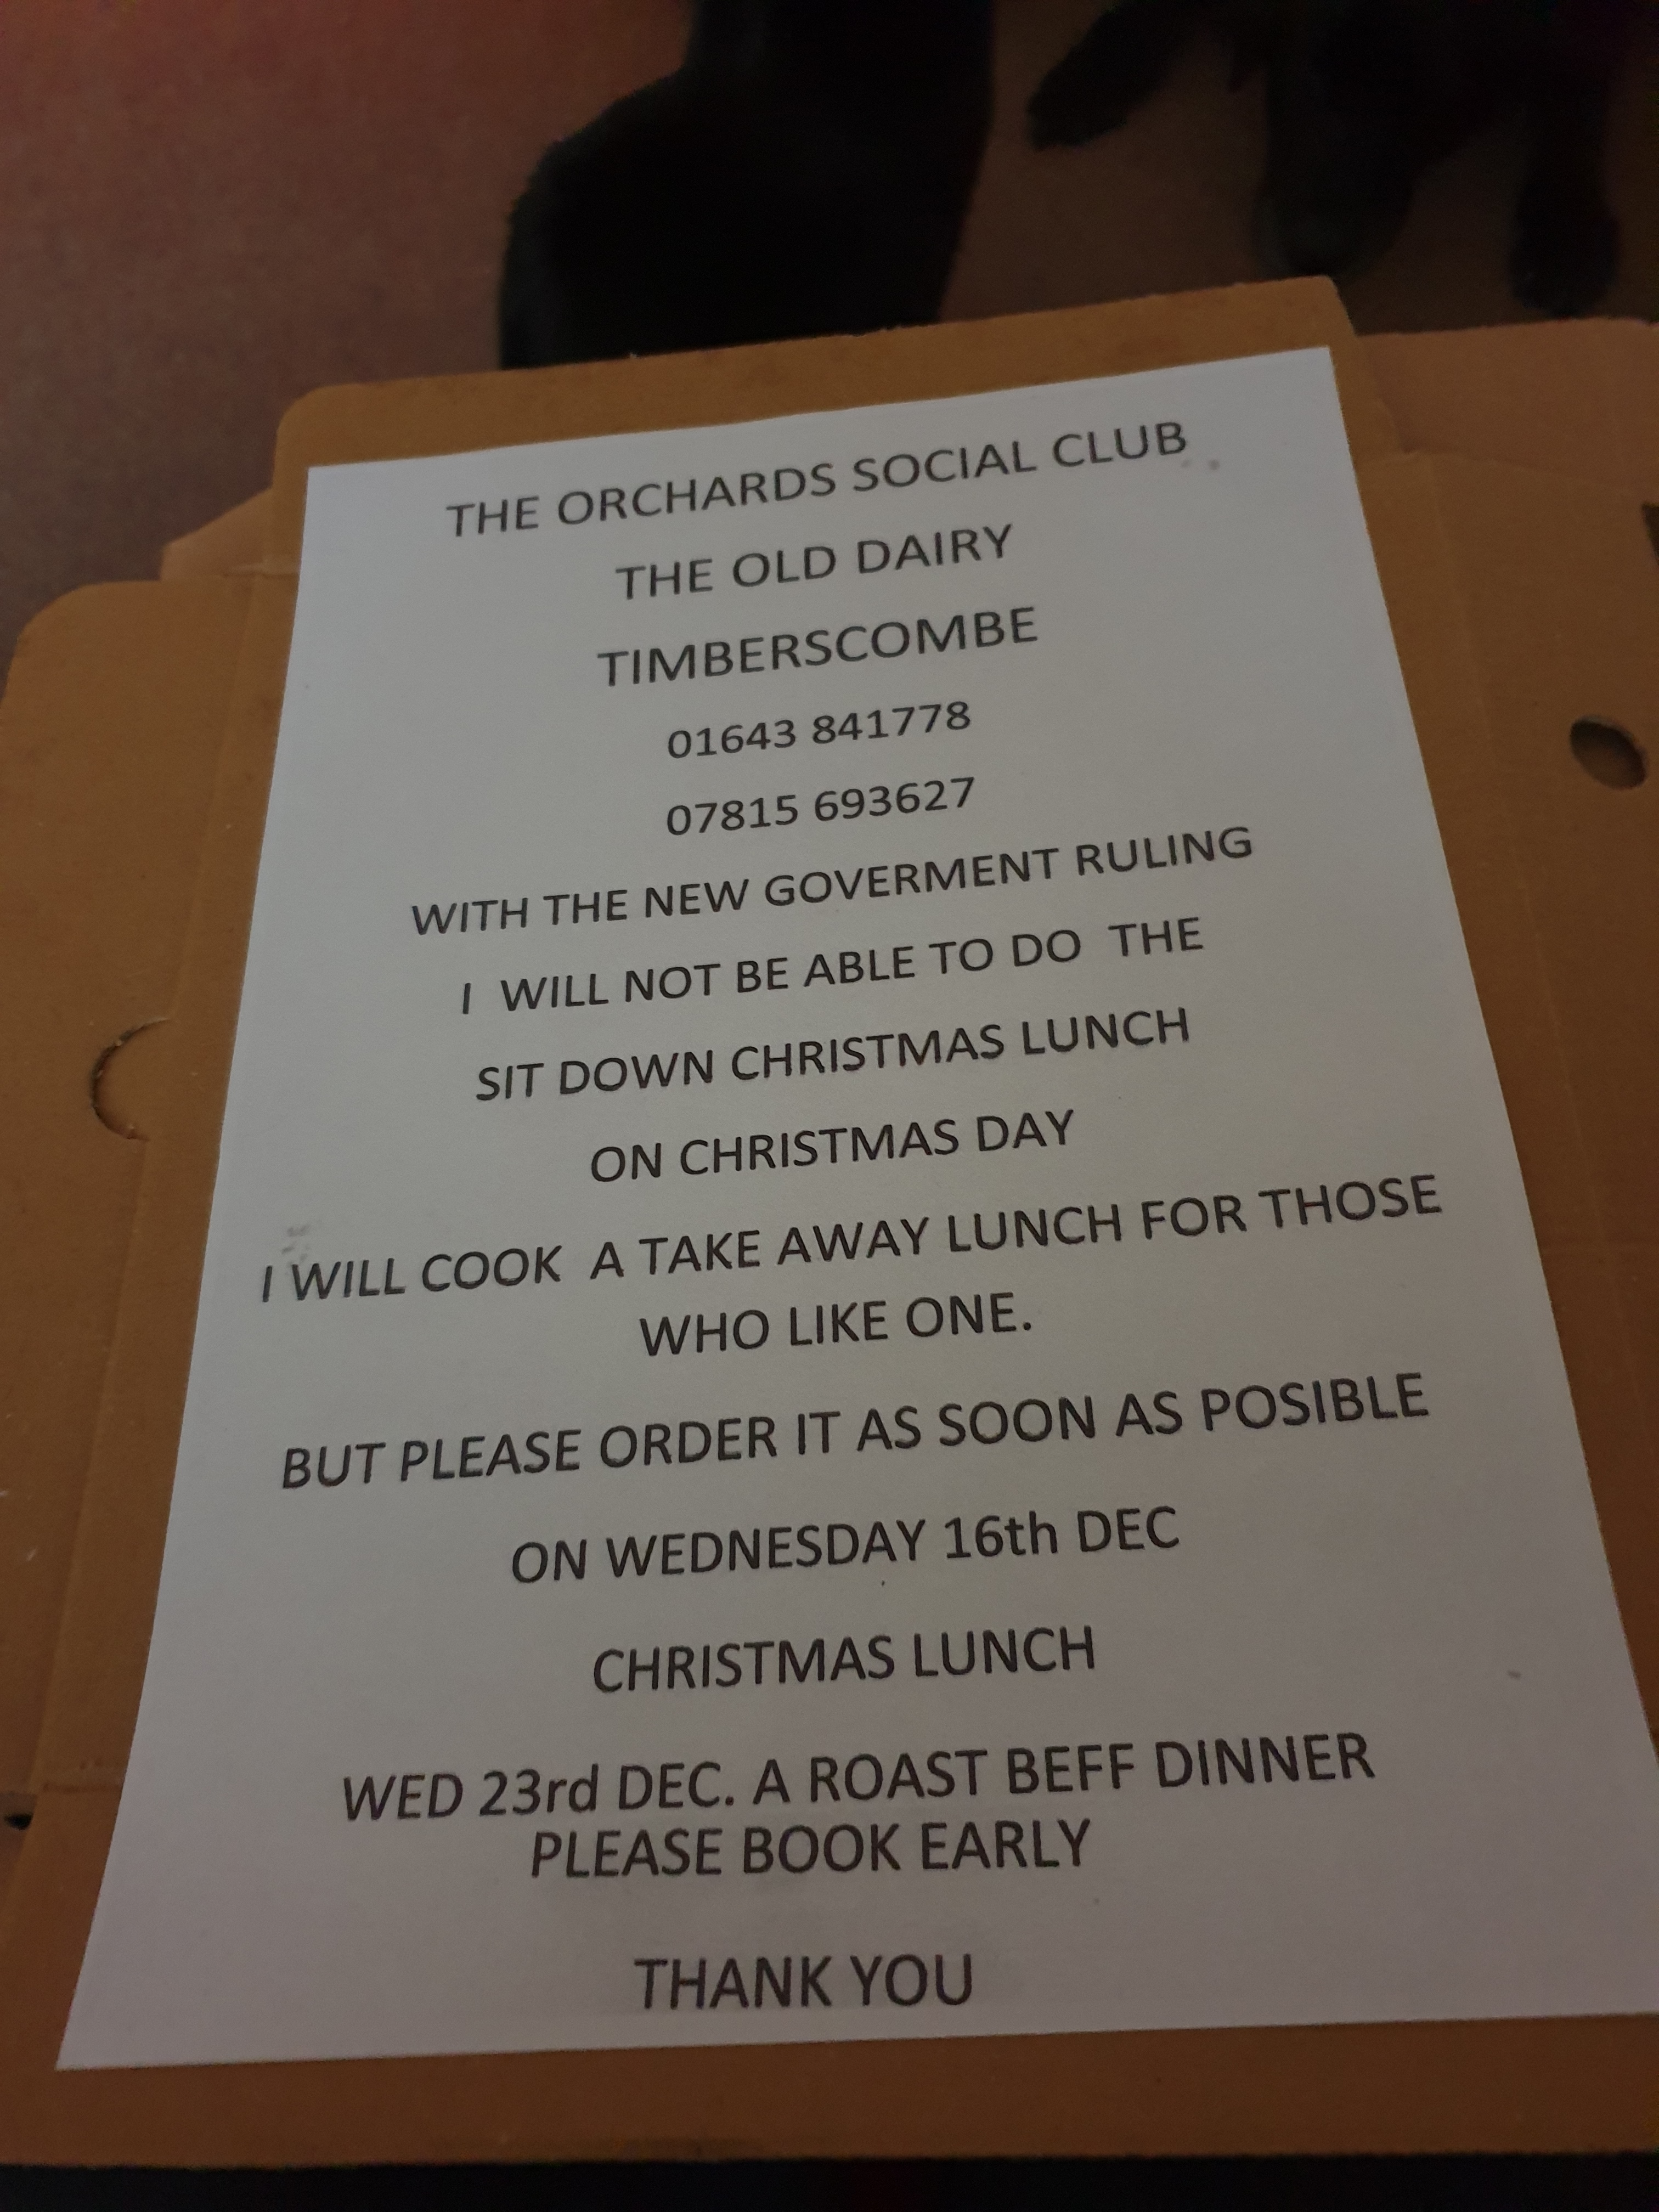 THE ORCHARDS SOCIAL CLUB
THE OLD DAIRY
TIMBERSCOMBE
01643 841778
07815 693627
WITH THE NEW GOVERMENT RULING
I WILL NOT BE ABLE TO DO THE
SIT DOWN CHRISTMAS LUNCH
ON CHRISTMAS DAY
I WILL COOK A TAKE AWAY LUNCH FOR THOSE
WHO LIKE ONE.
BUT PLEASE ORDER IT AS SOON AS POSIBLE
ON WEDNESDAY 16th DEC
CHRISTMAS LUNCH
WED 23rd DEC. A ROAST BEFF DINNER
PLEASE BOOK EARLY
THANK YOU